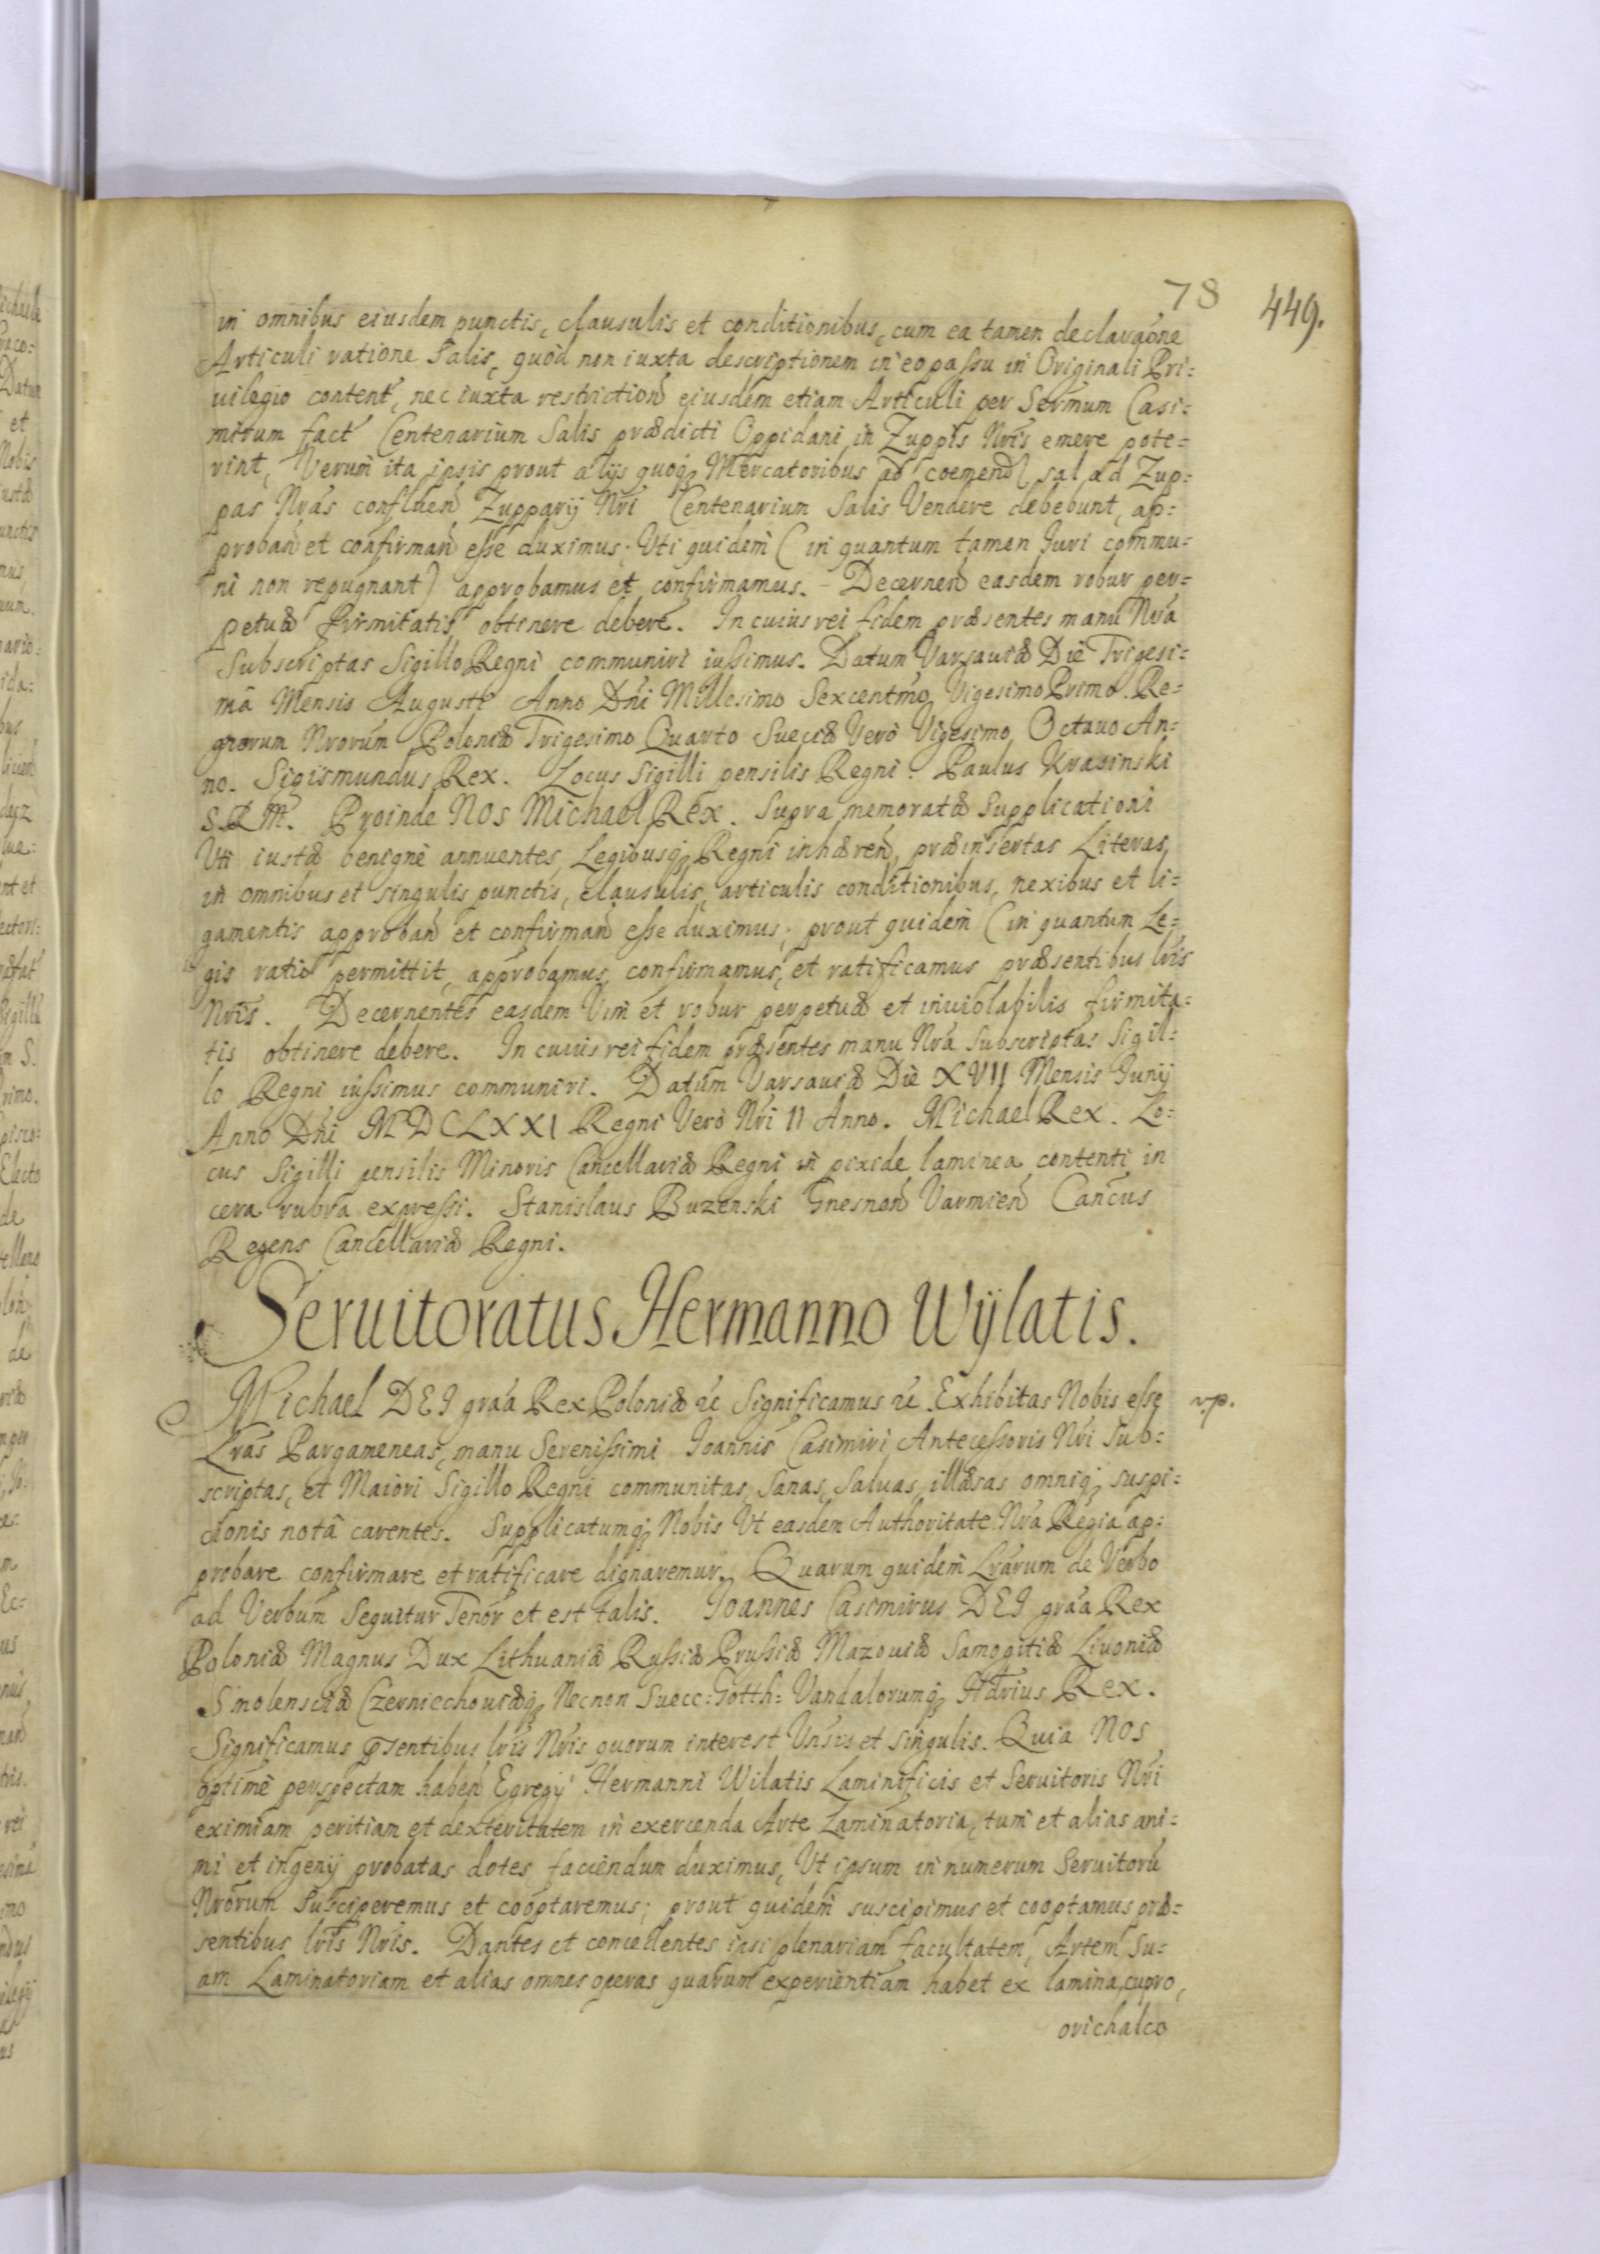 78 449.
in omnibus eiusdem punctis, clausulis et conditionibus, cum ea tamen declaraõne
Articuli ratione Salis, quòd non iuxta descriptionem in eo passu in Originali Pri=
uilegio content̃, nec iuxta restrictioñ eiusdem etiam Articuli per Sermum Casi=
mirum fact̃ Centenarium Salis prædicti Oppidani in Zuppis Nris emere pote=
rint, Verum ita ipsis prout alijs quoq; Mercatoribus ad coemend sal ad Zup=
pas Nras confluen̄ Zupparij Nri Centenarium Salis Vendere debebunt, ap=
proban̄ et confirman̄ esse duximus; Uti quidem (in quantum tamen Juri commu=
ni non repugnant) approbamus et confirmamus. - Decernen̄ easdem robur per=
petuæ firmitatis obtinere debere. In cuius rei fidem præsentes manu Nra
Subscriptas Sigillo Regni communiri iussimus. Datum Varsauiæ Die Trigesi=
mâ Mensis Augusti Anno Dni Millesimo Sexcentmo Vigesimo Primo. Re=
gnorum Nrorum Poloniæ Trigesimo Quarto Sueciæ Verò Vigesimo Octauo An=
no. Sigismundus Rex. Locus Sigilli pensilis Regni. Paulus Krasinski
S.R.M. Proinde NOS Michael Rex. Supra memoratæ Supplicationi
Uti iustæ benignè annuentes, Legibusq; Regni inhæren̄, præinsertas Literas,
in omnibus et singulis punctis, clausulis, articulis conditionibus, nexibus et li=
gamentis approban̄ et confirman̄ esse duximus; prout quidem (in quantum Le=
gis ratio permittit, approbamus, confirmamus, et ratificamus præsentibus lris
Nris. Decernentes easdem Vim et robur perpetuæ et inuiolabilis firmita=
tis obtinere debere. In cuius rei fidem præsentes manu Nra Subscriptas Sigil=
lo Regni iussimus communiri. Datum Varsauiæ Die XVII Mensis Junij
Anno Dni MDCLXXI Regni Verò Nri II Anno. Michael Rex. Lo=
cus Sigilli pensilis Minoris Cancellariæ Regni in pixide laminea contenti in
cera rubra expressi. Stanislaus Buzenski Gnesnen̄ Varmien̄ Cancus
Regens Cancellariæ Regni.
Seruitoratus Hermanno Wijlatis.
Michael DEI graa Rex Poloniæ &c Significamus &c. Exhibitas Nobis esse vp.
Lras Pargameneas, manu Serenissimi Joannis Casimiri Antecessoris Nri Sub=
scriptas, et Maiori Sigillo Regni communitas, Sanas, Saluas, illæsas omniq; suspi=
cionis notâ carentes. Supplicatumq; Nobis Ut easdem Authoritate Nra Regia ap=
probare confirmare et ratificare dignaremur. Quarum quidem Lrarum de Verbo
ad Verbum Sequitur Tenor et est talis. Joannes Casimirus DEI graa Rex
Poloniæ Magnus Dux Lithuaniæ Russiæ Prussiæ Mazouiæ Samogitiæ Liuoniæ
Smolensciæ Czerniechouiæq; Necnon Suecc: Gotth: Vandalorumq; Hærius Rex.
Significamus p̄sentibus lris Nris quorum interest Unsis et singulis. Quia NOS
optimè perspectam haben̄ Egregij Hermanni Wilatis Laminificis et Seruitoris Nri
eximiam peritiam et dexteritatem in exercenda Arte Laminatoria, tum et alias ani=
mi et ingenij probatas dotes faciendum duximus, Ut ipsum in numerum Seruitorũ
Nrorum Susciperemus et cooptaremus; prout quidem suscipimus et cooptamus præ=
sentibus lris Nris. Dantes et concedentes ipsi plenariam facultatem, Artem Su=
am Laminatoriam et alias omnes operas quarum experientiam habet ex lamina, cupro,
orichalco